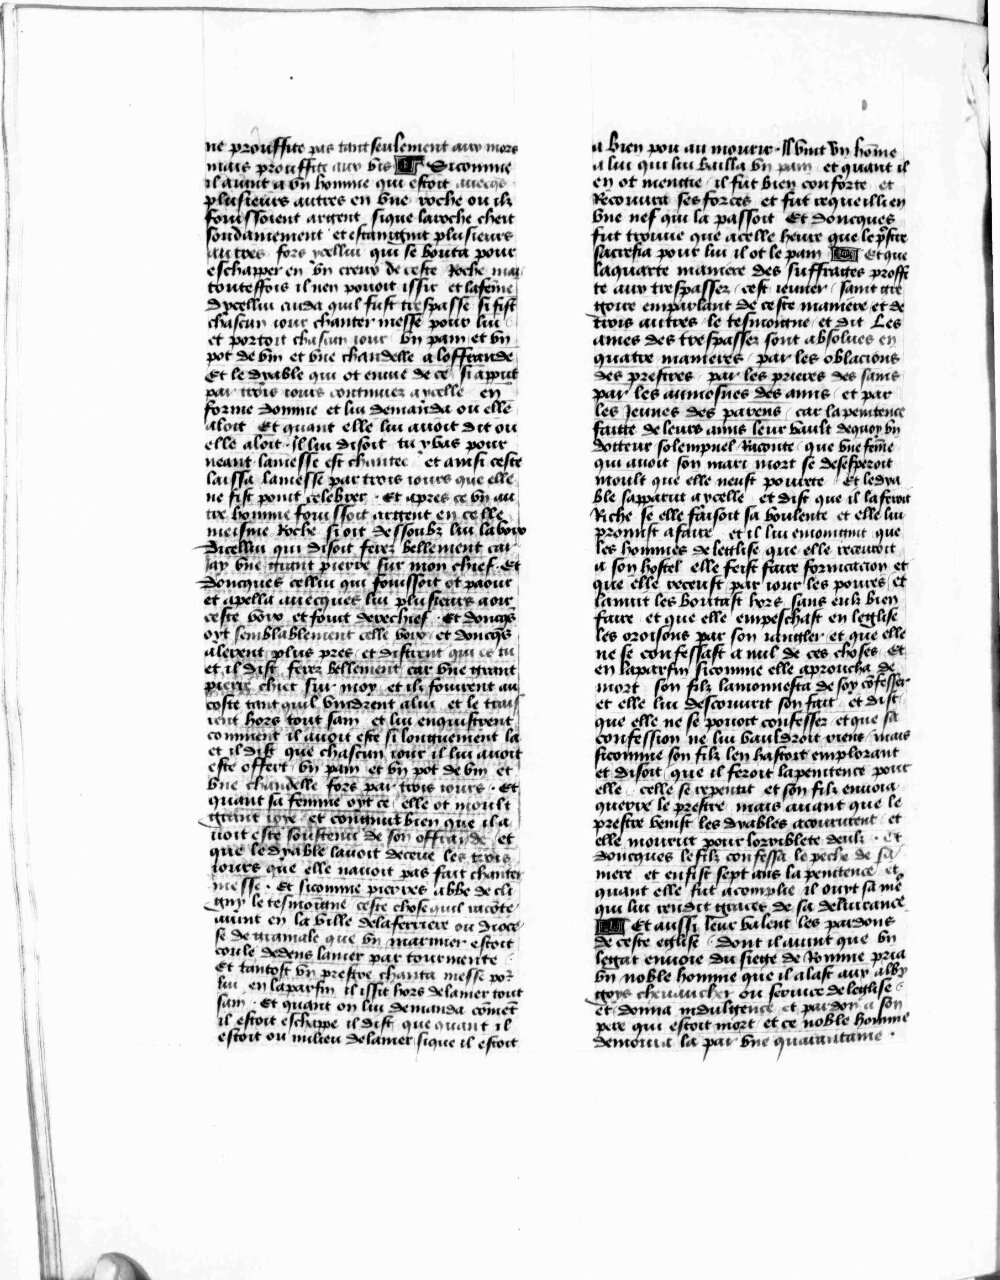 ne prouffite pas tant seulement aux mors
mais prouffite aux vis Sicomme
il auint a vn homme qui estoit auecqs
plusieurs autres en vne roche ou ilz
fouissoient argent sique laroche cheit
soudainement et estaingnit plusieurs
autres fors ycellui qui se bouta pour
eschapper en vn creux de ceste Roche mais
touteffois il nen pouoit issir et lafeme
dycellui cuida quil fust trespasse si fist
chascun iour chanter messe pour lui
et portoit chascun iour vn pain et vn
pot de vin et vne chandelle a loffrande
Et le dyable qui ot enuie de ce si apput
par trois iours continuez a ycelle en
forme domme et lui demanda ou elle
aloit Et quant elle lui auoit dit ou
elle aloit il lui disoit tu y vas pour
neant lamesse est chantee et ainsi ceste
laissa lamesse par trois iours que elle
ne fist point celebrer Et apres ce vn au
tre homme fouissoit argent en celle
meisme Roche si oit dessoubz lui la voix
dicellui qui disoit ferez bellement car
iay vne grant pierre sur mon chief Et
doncques cellui qui fouissoit ot paour
et apella auecques lui plusieurs a oir
ceste voix et fouit derechief Et doncqs
oyt semblablement celle voix et doncqs
alerent plus pres et distrent qui es tu
et il dist ferez bellement car vne grant
pierre chiet sur moy et ilz fouirent au
coste tant quil vindrent a lui et le trais
rent hors tout sain et lui enquistrent
comment il auoit este si longuement la
et il dist que chascun iour il lui auoit
este offert vn pain et vn pot de vin et
vne chandelle fors par trois iours Et
quant sa femme oyt ce elle ot moult
grant ioye et congnut bien que il a
uoit este soustenu de son offrande et
que le dyable lauoit deceue les trois
iours que elle nauoit pas fait chanter
messe Et sicomme pierres abbe de cli
gny le tesmoigne ceste chose quil racote
auint en la ville de laferriere ou dioce
se de gramale que vn marinier estoit
coule dedens lamer par tourmente
Et tantost vn prestre chanta messe por
lui en laparfin il issit hors de lamer tout
sain Et quant on lui demanda coment
il estoit eschappe il dist que quant il
estoit ou milieu de lamer sique il estoit
a bien pou au mourir Il vint vn home
a lui qui lui bailla vn pain et quant il
en ot mengie il fut bien conforte et
Recouura ses forces et fut requeilli en
vne nef qui la passoit Et doncques
fut trouue que acelle heure que le pstre
sacrefia pour lui il ot le pain Et que
laquarte maniere des suffrages proffi
te aux trespassez cest ieuner saint gre
goire emparlant de ceste maniere et de
trois autres le tesmoigne et dit Les
ames des trespassez sont absolues en
quatre manieres par les oblacions
des prestres par les prieres des sains
par les aumosnes des amis et par
les Jeunes des parens car lapenitence
faitte de leurs amis leur vault dequoy vn
dotteur solempnel Raconte que vne feme
qui auoit son mari mort se desesperoit
moult que elle neust pourete Et le dya
ble sapparut a ycelle et dist que il laferoit
Riche se elle faisoit sa voulente et elle lui
promist afaire et il lui enioingnit que
les hommes de leglise que elle receuroit
a son hostel elle feist faire fornicacion et
que elle receust par iour les poures et
lanuit les boutast hors sans eulz bien
faire et que elle empeschast en leglise
les oroisons par son iangler et que elle
ne se confessast a nul de ces choses Et
en laparfin sicomme elle aproucha de
mort son filz lamonnesta de soy cofesser
et elle lui descouurit son fait et dist
que elle ne se pouoit confesser et que sa
confession ne lui vauldroit riens mais
sicomme son filz len hastoit emplorant
et disoit que il feroit lapenitence pour
elle celle se repentit et son filz enuoia
querre le prestre mais auant que le
prestre venist les dyables acoururent et
elle mourut pour lorriblete deulz Et
doncques le filz confessa le peche de sa
mere et en fist sept ans la penitence et
quant elle fut acomplie il ouyt sa me
qui lui rendit graces de sa deliurance
Et aussi leur valent les pardons
de ceste eglise dont il auint que vn
legat enuoie du siege de Romme pria
vn noble homme que il alast aux alby
goys cheuaucher ou seruice de leglise
et donna indulgence et pardon a son
pere qui estoit mort et ce noble homme
demoura la par vne quarantaine